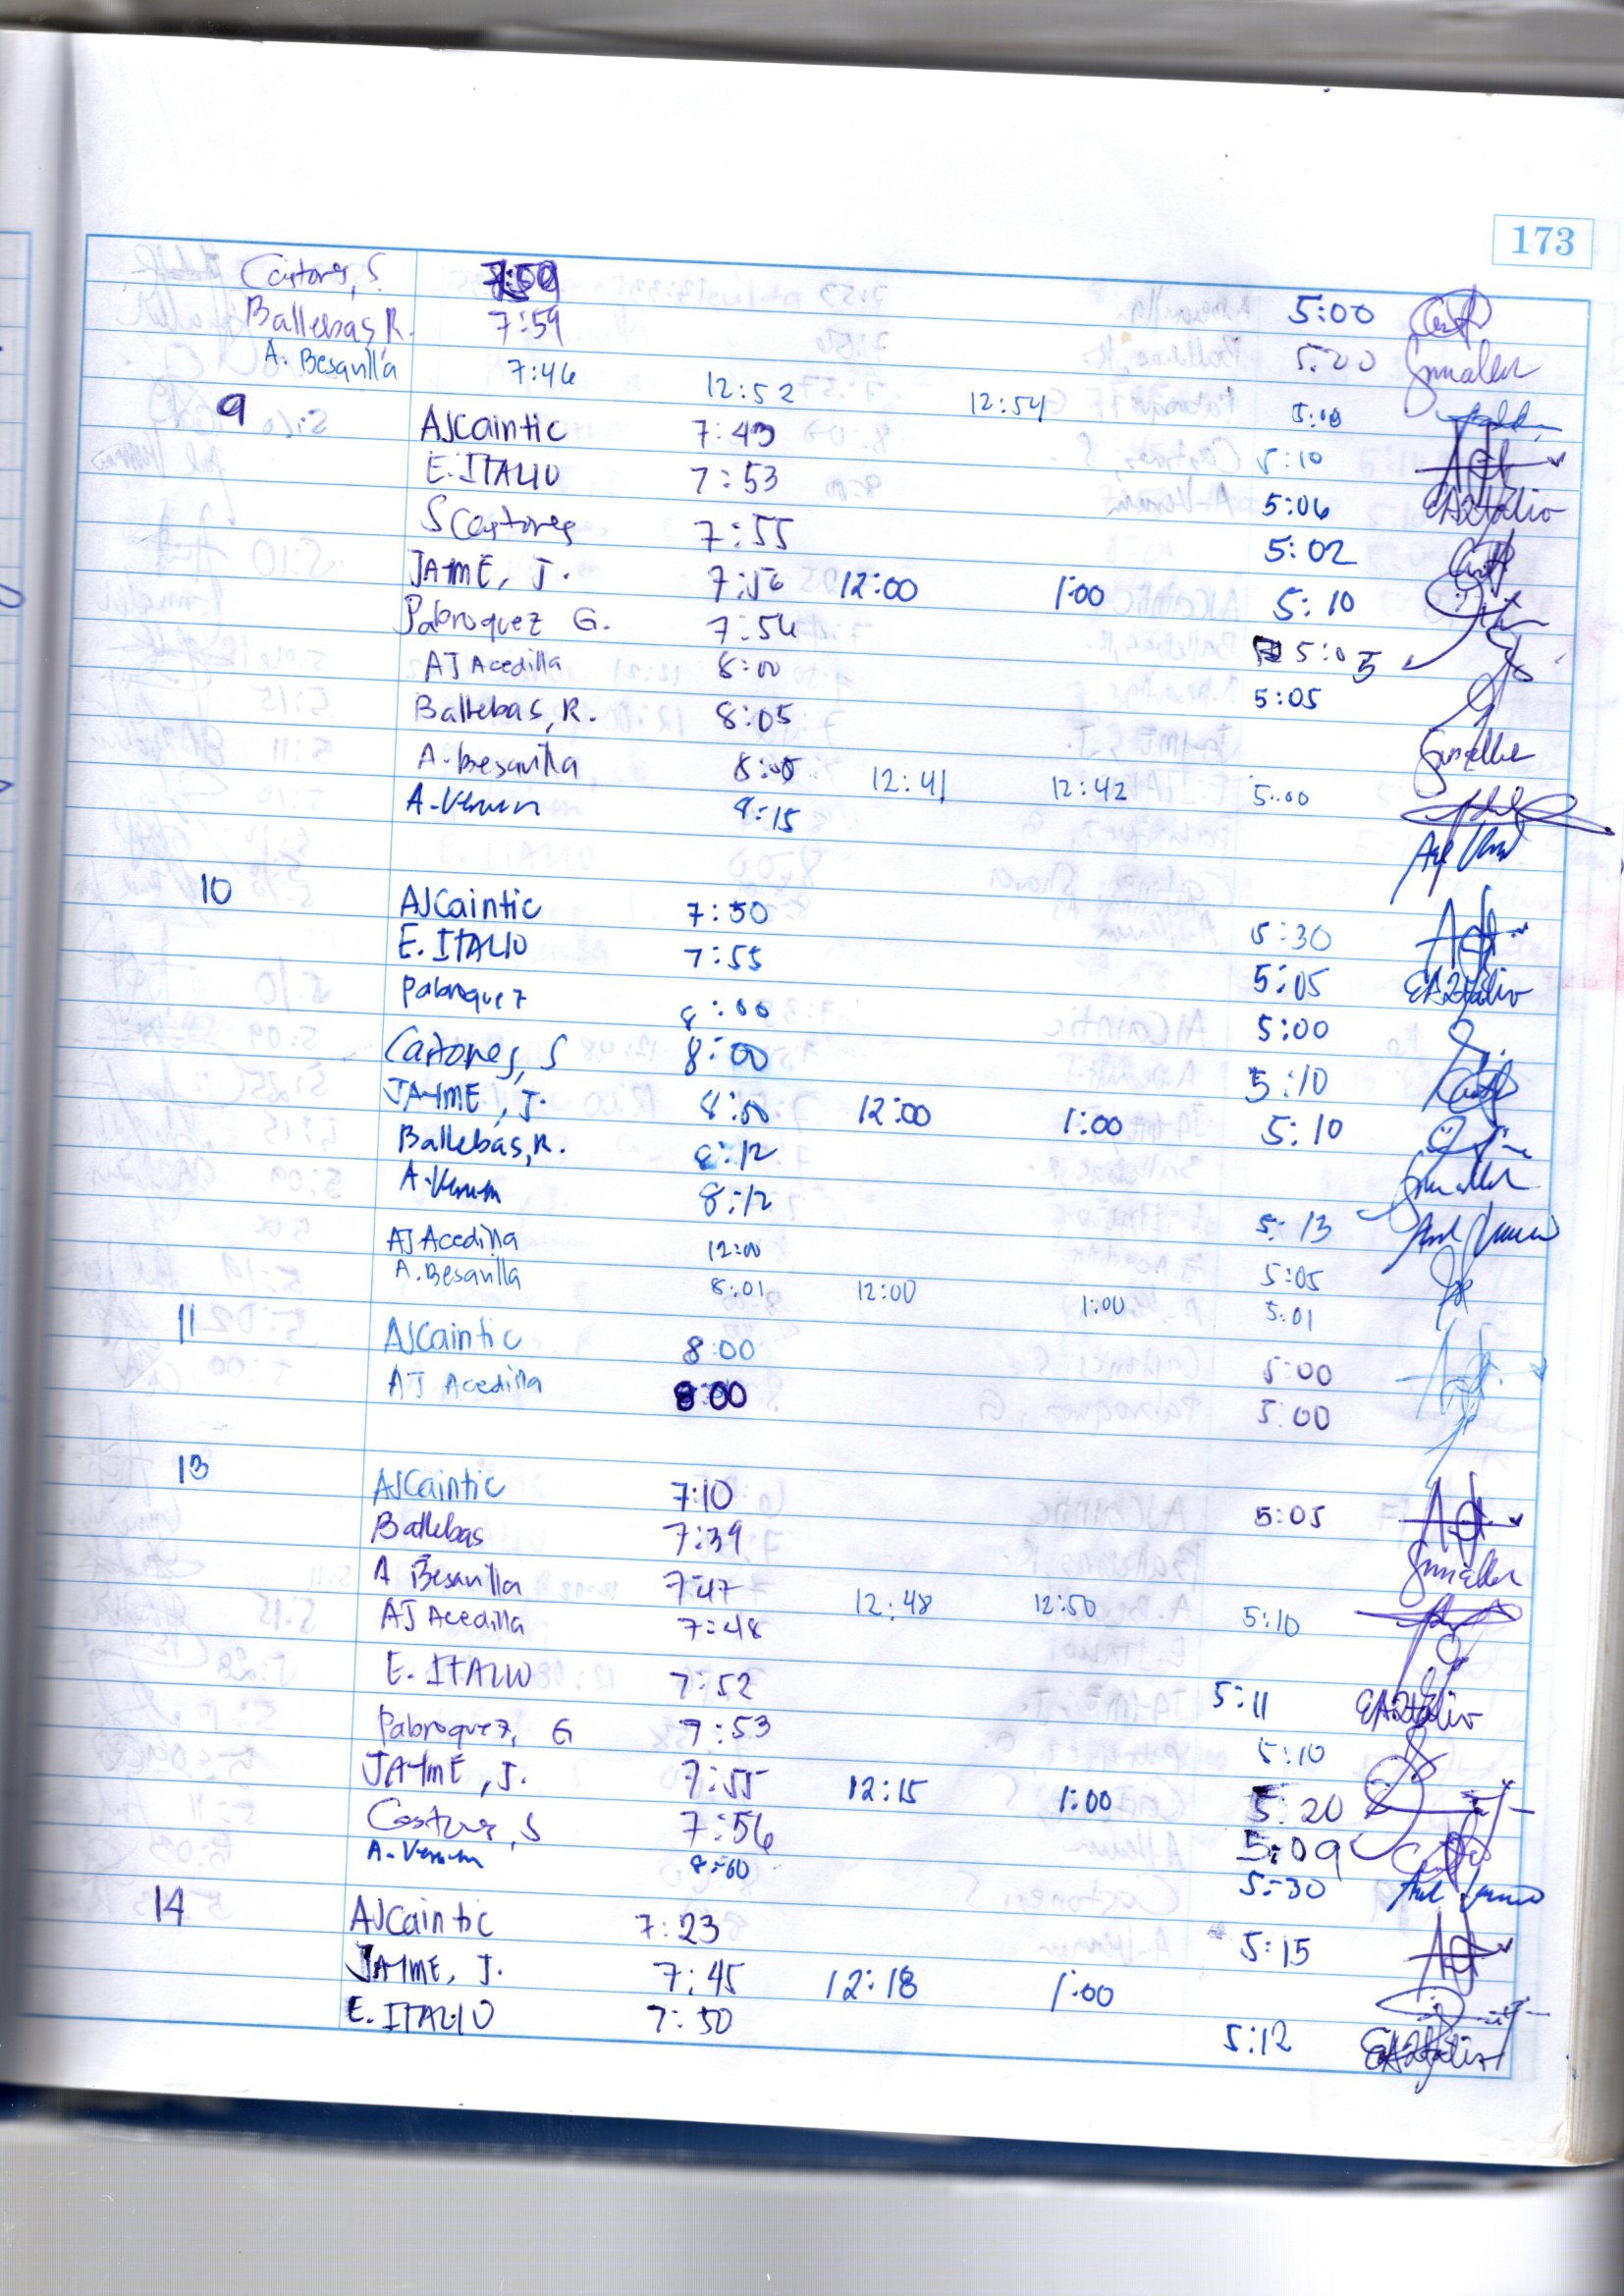 173
Castores, S. 5:00
Ballebas, R. 7:59 5:00
A. Besavilla 7:46 12:52 12:54 5:00
9 AJCaintic 7:43 5:10
E. ITALIO 7:53 5:06
S Castores 7:55 5:02
JAIME, J. 7:56 12:00 1:00 5:10
Pabroquez G. 7:54 5:05
AJ Acedilla 8:00 5:05
Ballebas, R. 8:05
A. Besavilla 8:05 12:41 12:42 5:00
A. Verum 8:15
10 AJCaintic 7:50 5:30
E. ITALIO 7:55 5:05
Pabroquez 8:00 5:00
Castores, S 8:00 5:10
JAIME, J. 8:00 12:00 1:00 5:10
Ballebas, R. 8:12
A. Verum 8:12 5:13
AJ Acedilla 12:00 5:05
A. Besavilla 8:01 12:00 1:00 5:01
11 AJCaintic 8:00 5:00
AJ Acedilla 8:00 5:00
13 AJCaintic 7:10 5:05
Ballebas 7:39
A Besavilla 7:47 12:48 12:50 5:10
AJ Acedilla 7:48
E. ITALIO 7:52 5:11
Pabroquez, G 7:53 5:10
JAIME, J. 7:55 12:15 1:00 5:20
Castores, S 7:56 5:09
A. Verum 8:00 5:30
14 AJCaintic 7:23 5:15
JAIME, J. 7:45 12:18 1:00
E. ITALIO 7:50 5:12